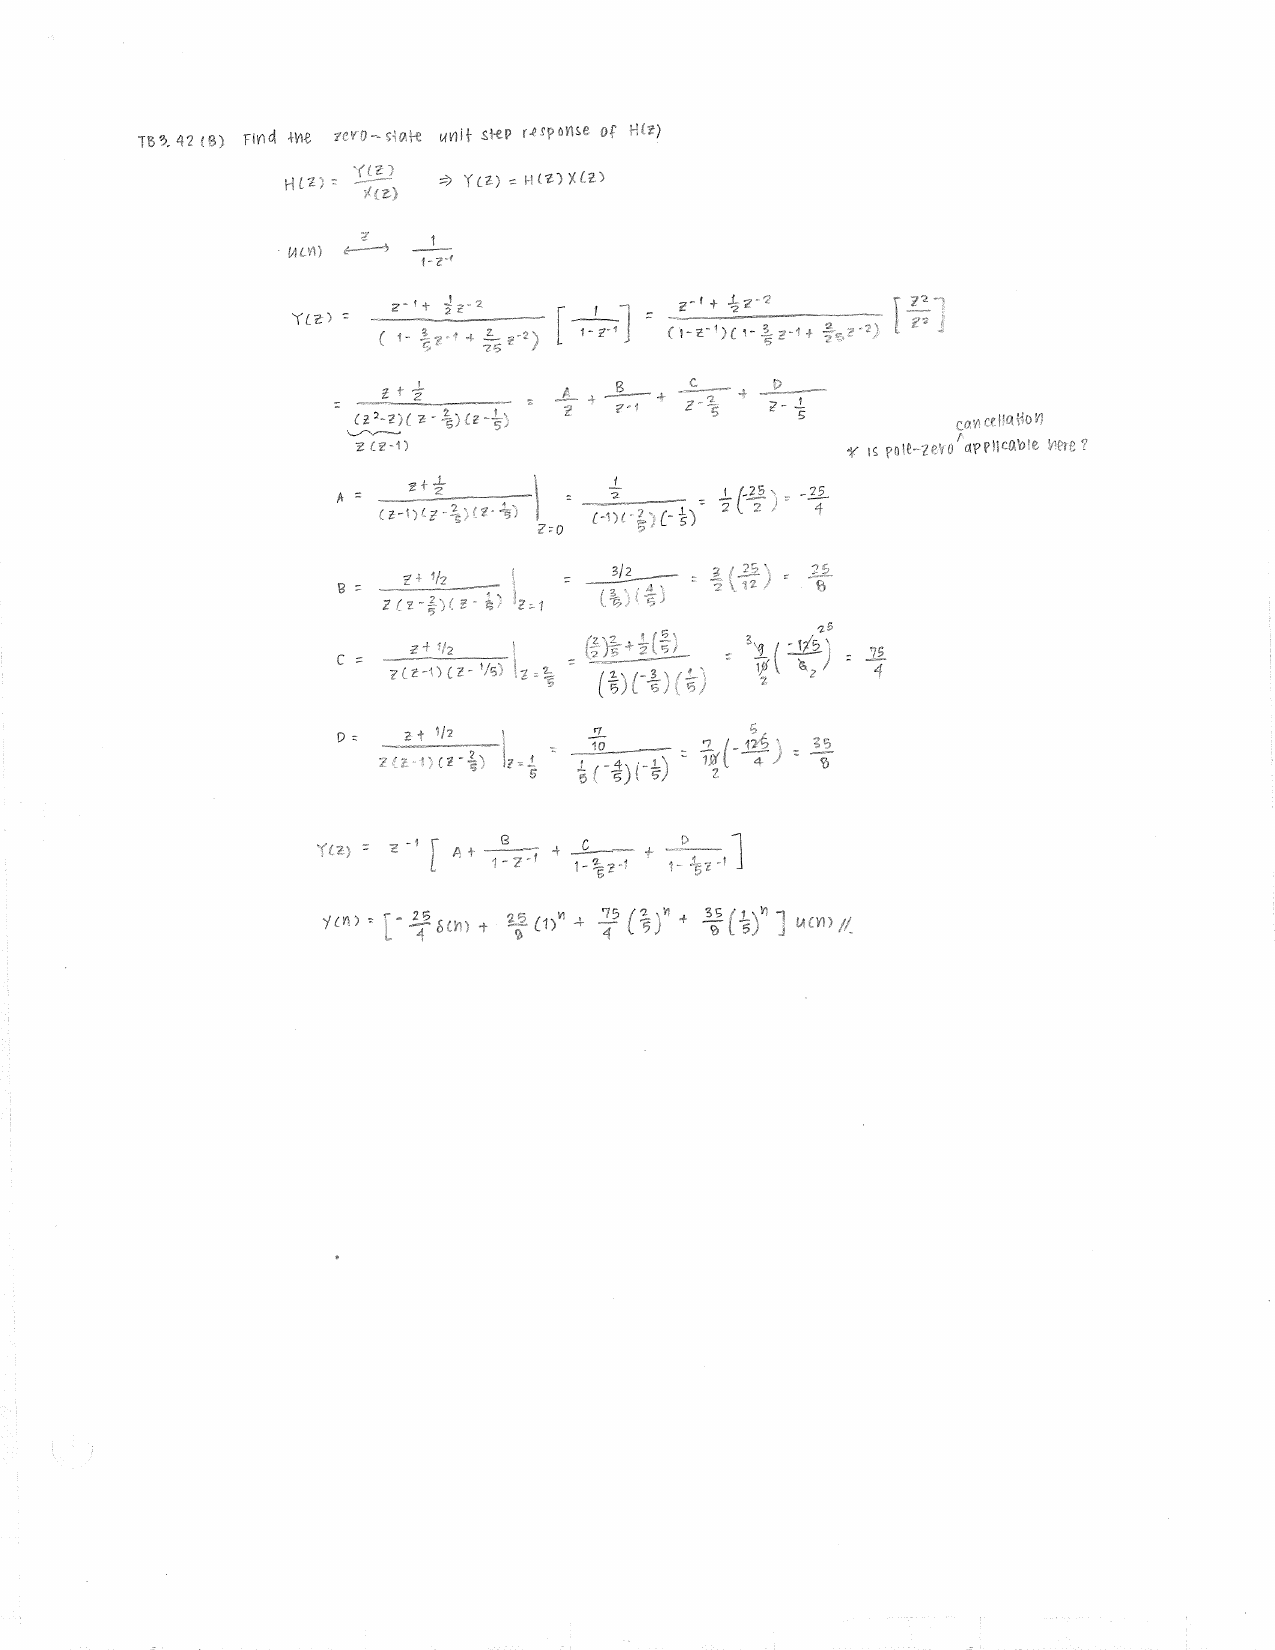 TB 3.42 (B) Find the zero-state unit step response of H(z)
H(z) = Y(z)/X(z) ⇒ Y(z) = H(z)X(z)
u(n) ⟷^z 1/(1-z⁻¹)
Y(z) = (z⁻¹ + 1/2 z⁻²)/(1 - 3/5 z⁻¹ + 2/25 z⁻²) [1/(1-z⁻¹)] = (z⁻¹ + 1/2 z⁻²)/((1-z⁻¹)(1 - 3/5 z⁻¹ + 2/25 z⁻²)) [z²/z²]
= (z + 1/2)/((z²-z)(z - 2/5)(z - 1/5)) = A/z + B/(z-1) + C/(z - 2/5) + D/(z - 1/5)
z(z-1)
* is pole-zero ^cancellation applicable here?
A = (z + 1/2)/((z-1)(z - 2/5)(z - 1/5)) |z=0 = (1/2)/((-1)(-2/5)(-1/5)) = 1/2 (-25/2) = -25/4
B = (z + 1/2)/(z(z - 2/5)(z - 1/5)) |z=1 = (3/2)/((3/5)(4/5)) = 3/2 (25/12) = 25/8
C = (z + 1/2)/(z(z-1)(z - 1/5)) |z=2/5 = ((2/2)2/5 + 1/2(5/5))/((2/5)(-3/5)(1/5)) = 9/10 (-125/6) = 75/4
D = (z + 1/2)/(z(z-1)(z - 2/5)) |z=1/5 = (7/10)/(1/5(-4/5)(-1/5)) = 7/10 (-125/4) = 35/8
Y(z) = z⁻¹ [A + B/(1-z⁻¹) + C/(1 - 2/5 z⁻¹) + D/(1 - 1/5 z⁻¹)]
y(n) = [-25/4 δ(n) + 25/8 (1)ⁿ + 75/4 (2/5)ⁿ + 35/8 (1/5)ⁿ] u(n) //